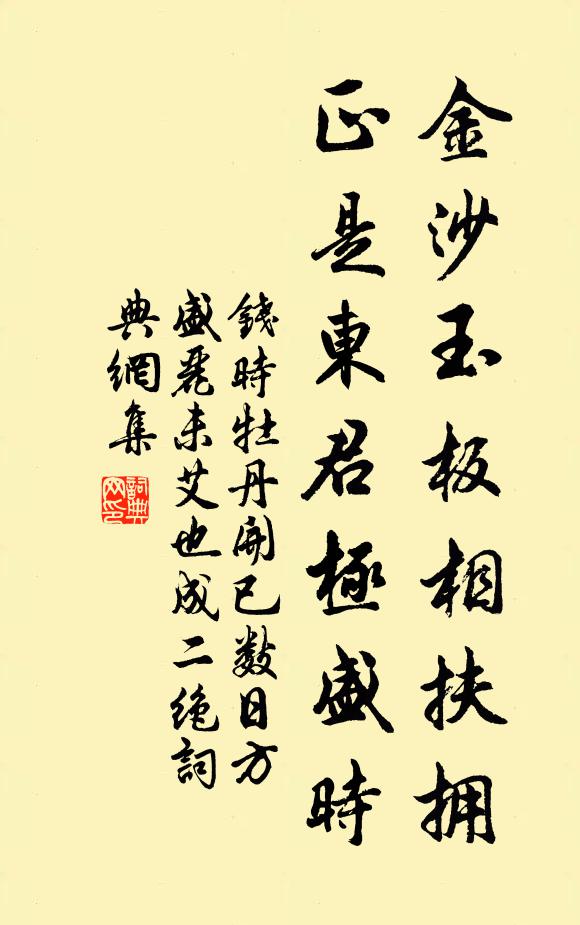 金沙玉板相扶拥
正是東君極盛時
錢時牡丹開已数日方
盛麗未艾也成二绝詞
典網集
詞典
网印